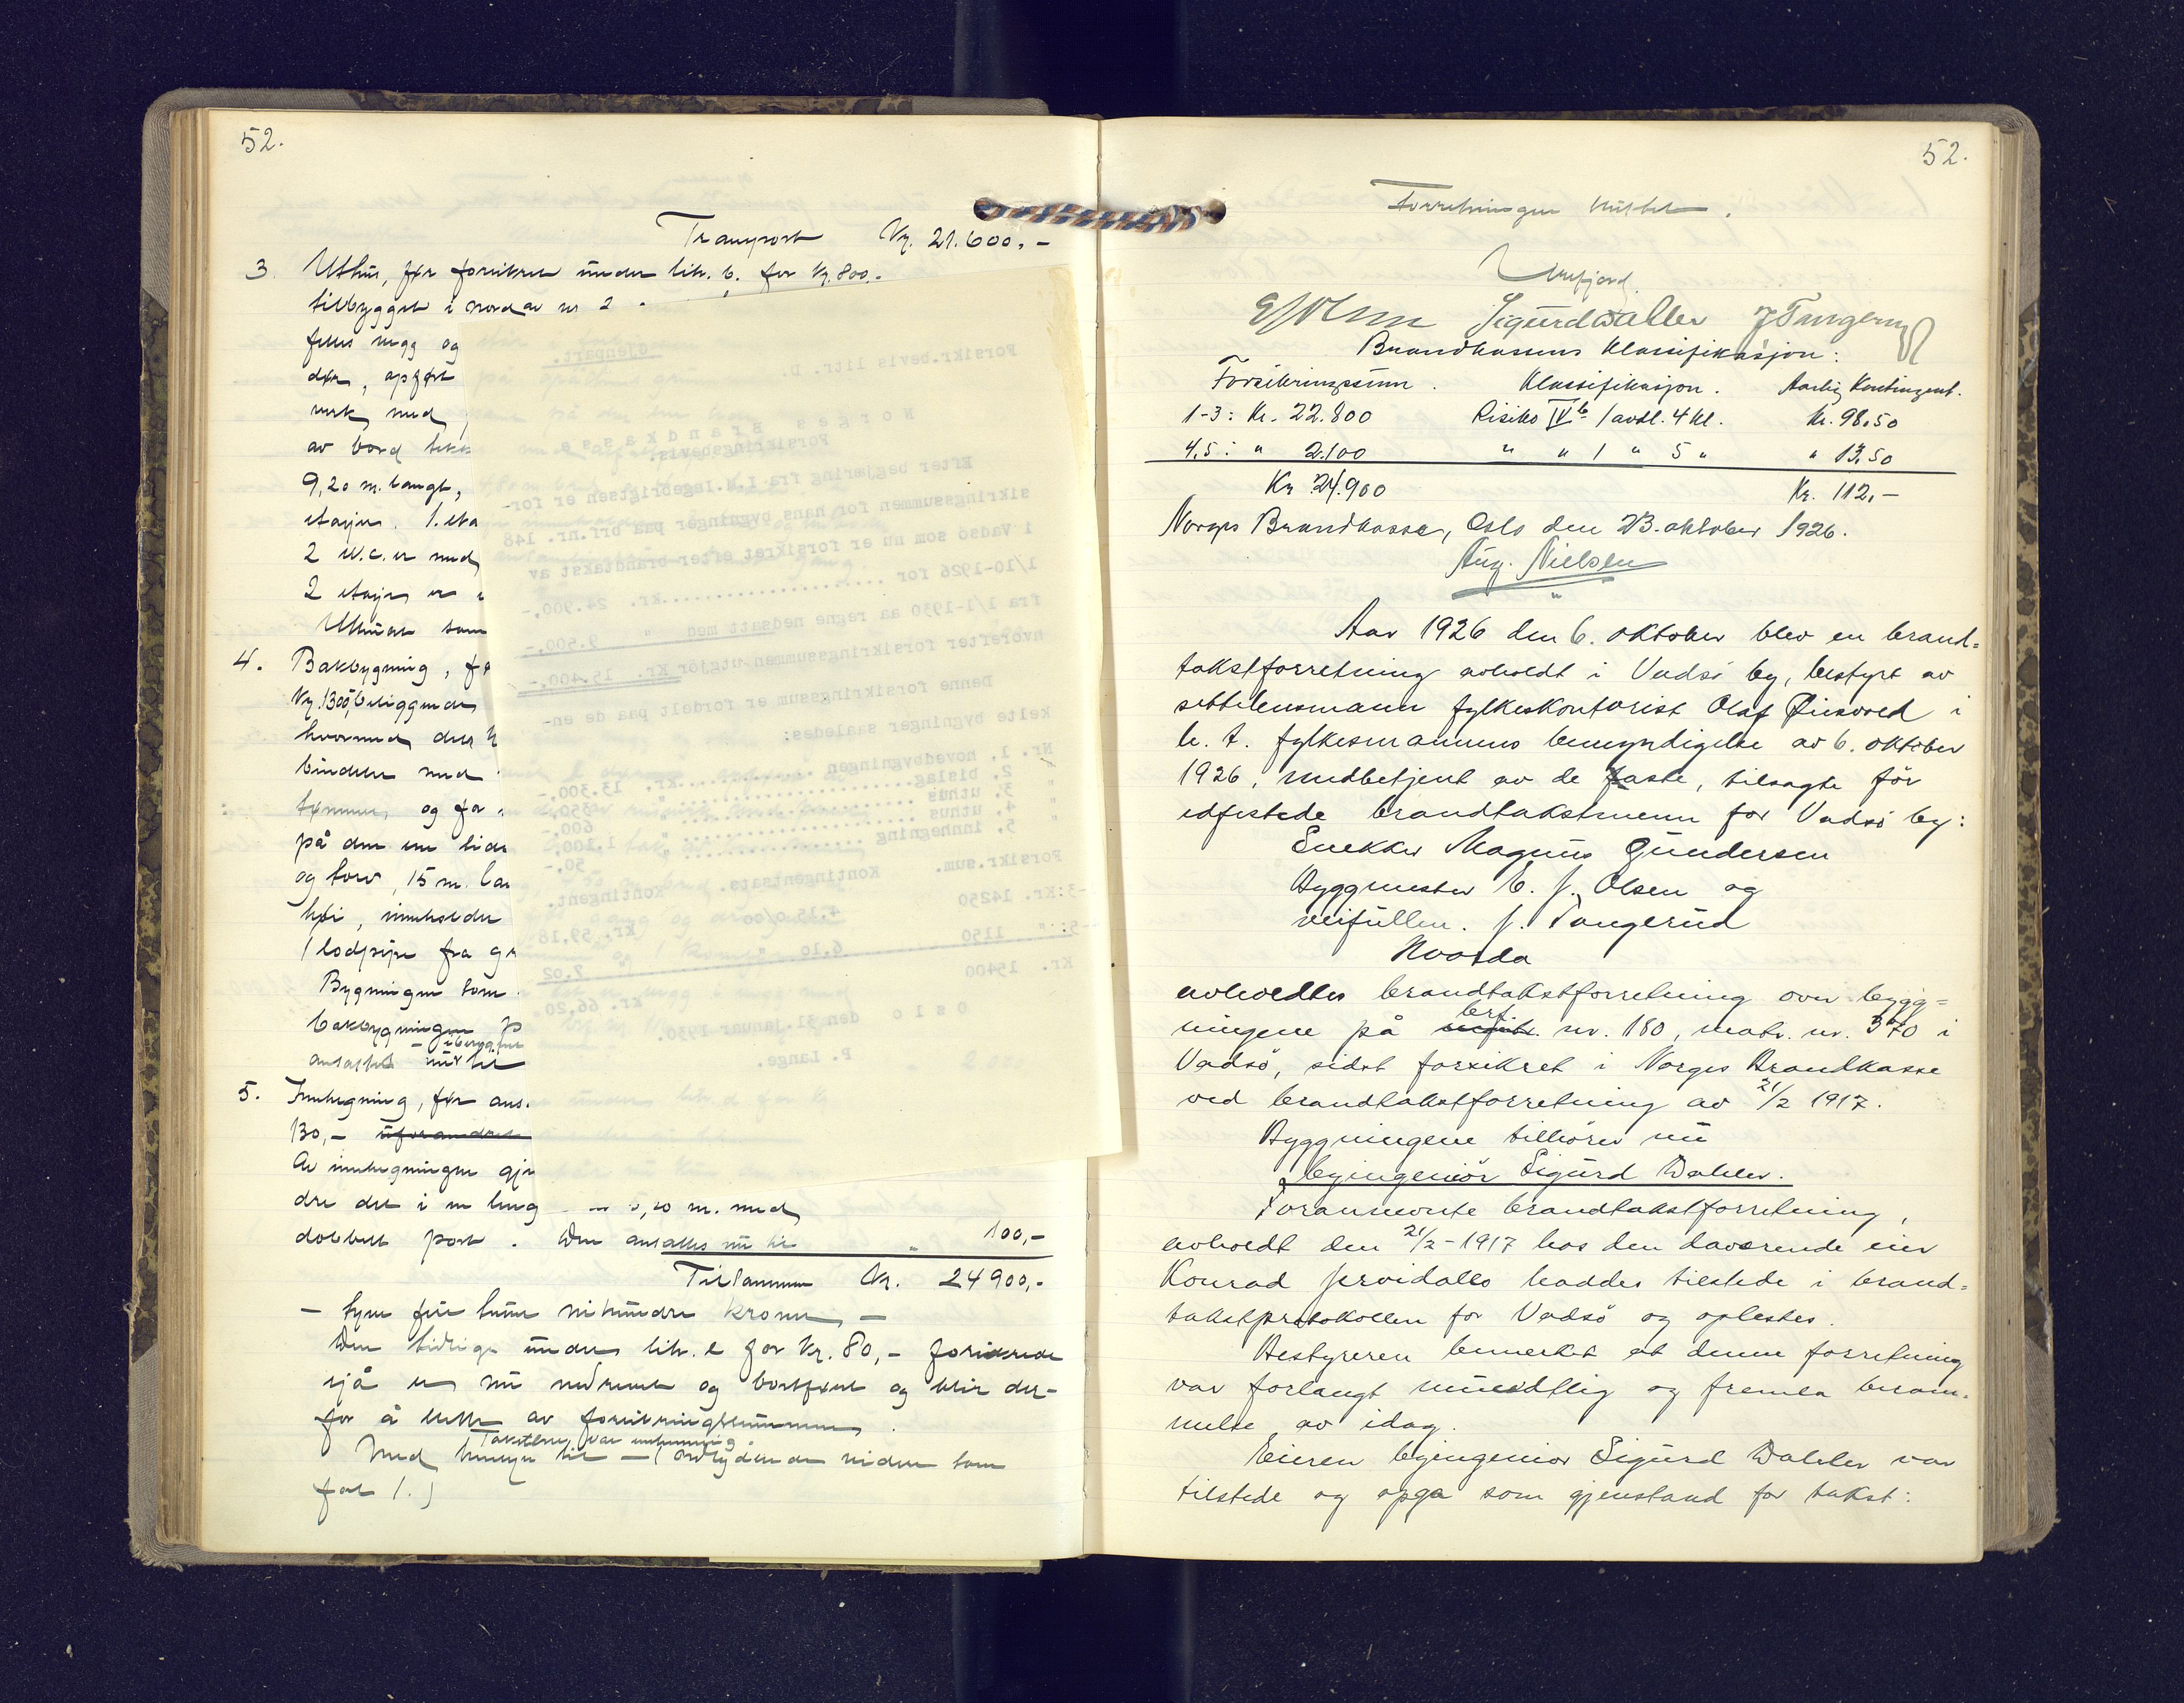 52.
Transport Kr. 21.600.-
3. Uthus, før forsikret under litr. b. for Kr. 800.-
tilbygget i nord av nr 2
felles vegg og
dør, opført
verk med
av bord
9,20 m. langt,
etasjer. 1. eta
2 W.C. er med
2 etasjer er
Uthuset som
4. Bakbygning, fø
Kr. 1300,- beliggende
hvormed den
bindelse med
tømmer, og for
på den ene side
og torv, 15 m. la
høi, inneholder
1 lodpipe fra g
Bygningen som
bakbygningen
ansattes nu til
5. Innhegning, før ans.
130,- uforandret
Av innhegningen gje
dre det i en leng 5,20 m. med
dobbelt port. Den ansattes nu til " 100,-
Tilsammen Kr. 24900,-
- tyve fire tusen nihundre kroner -
Den tidligere under litr. e for Kr. 80,- forsikrede
sjå er nu nedrevet og bortført og blir der-
for å slette av forsikringssummen.
Takstene var enstemmig
Med hensyn til - (ordlydende videre som
fol 1.)
Gjenpart.
Forsikr.bevis litr. D.
Norges Brandkasse
Forsikringsbevis.
Efter begjæring fra I.M.Ingebrigtsen er for-
sikringssummen for hans bygninger paa brf.nr. 148
i Vadsö som nu er forsikret efter brandtakst av
1/10-1926 for ..................Kr. 24.900,-
fra 1/1-1930 aa regne nedsatt med " 9.500,-
hvorefter forsikringssummen utgjör Kr. 15.400,-
Denne forsikringssum er fordelt paa de en-
kelte bygninger saaledes:
Nr. 1, hovedbygningen ............Kr. 13.300,-
" 2, bislag.................. " 350,-
" 3, uthus .................. " 600,-
" 4, uthus .................. " 1.100,-
" 5, innhegning .............. " 50,-
Forsikr.sum. Kontingentsats. Kontingent.
-3:Kr. 14250 4.15 o/oo Kr. 59,18
-5: " 1150 6.10 " " 7.02
Kr. 15400 Kr. 66,20
Oslo den 31.januar 1930.
P. Lange.
52.
Forretningen sluttet.
Urefjord.
E J Olsen Sigurd Wahler J Tangerud
Brandkassens Klassifikasjon:
Forsikringssum. Klassifikasjon. Aarlig Kontingent.
1-3: Kr. 22.800 Risiko IV b 1 avdl. 4 Kl. Kr. 98,50
4,5: " 2.100 " " 1 " 5 " " 13,50
Kr 24.900 Kr. 112,-
Norges Brandkasse, Oslo den 23. oktober 1926.
Aug. Nielsen
Aar 1926 den 6. oktober blev en brand-
takstforretning avholdt i Vadsö by, bestyrt av
settelensmann fylkeskontorist Olaf i
h. t. fylkesmannens bemyndigelse av 6. oktober
1926, medbetjent av de faste, tilsagte før
edfestede brandtakstmenn for Vadsö by:
Snekker Magnus Gundersen
Byggmester E. J. Olsen og
veifullm. J. Tangerud
Hvorda
avholdtes brandtakstforretning over bygg-
ningene på brf. nr. 180, matr. nr. 370 i
Vadsö, sidst forsikret i Norges Brandkasse
ved brandtakstforretning av 21/2 1917.
Byggningene tilhörer nu
byingeniör Sigurd Wahler.
Forannevnte brandtakstforretning,
avholdt den 21/2-1917 hos den daværende eier
Konrad haddes tilstede i brand-
takstprotokollen for Vadsö og oplestes.
Bestyreren bemerket at denne forretning
var forlangt mundtlig og fremla beram-
melse av idag.
Eieren byingeniør Sigurd Wahler var
tilstede og opga som gjenstand for takst: